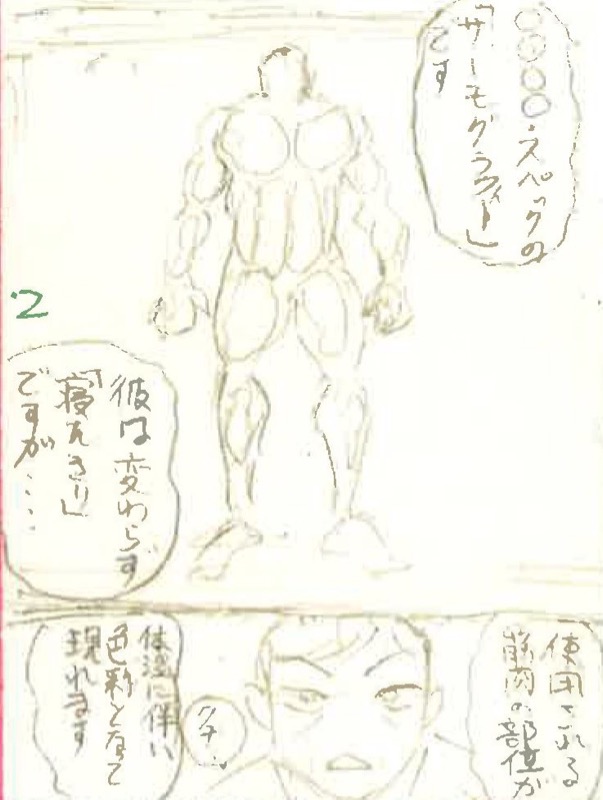 ○○○○・スペックの
「サーモグラフィー」
です
2
彼は変わらず
「寝たきり」
ですが‥‥
使用される
筋肉の部位が
体温に伴い
色彩となって
現れます